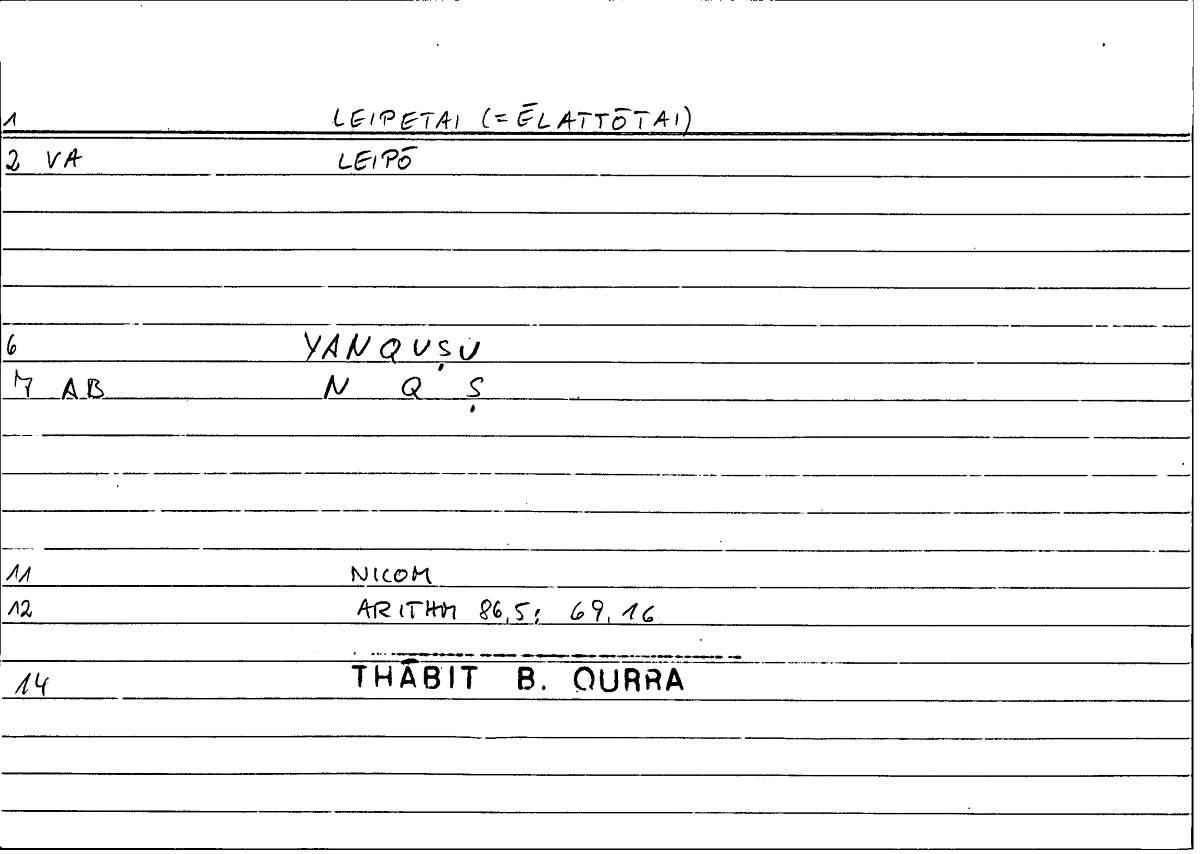 1 LEIPETAI (= ĒLATTŌTAI)
2 VA LEIPŌ
6 YANQUṢU
7 AB N Q Ṣ
11 NICOM
12 ARITHM 86,5; 69,16
14 THĀBIT B. QURRA